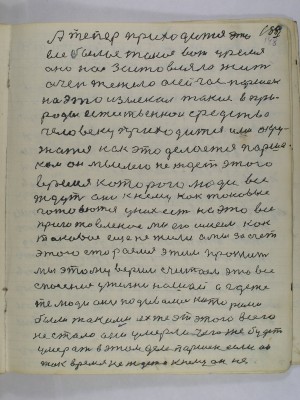 А теперь приходится это
все былье такая вот время
оно нас заставляла жит
очен тежело а сейчас паршек
на это измекал такие в при-
роды естественной средство
человеку приходится или окру-
жатся как это делается парше-
ком он мыслью не ждет этого
время которого люди все
ждут они к нему как таковые
готовятся у них ест на это все
приготовление мы его имеем как
таковое еще не жили а мы за счет
этого стораемся этим прожит
мы этому верим считаем это все
спасения у жизни нашей а где же
те люди они подевались которыми
были такими их же от этого всего
не стало они умерли
умерат в этом деле паршек если он
так время не ждет к нему он не